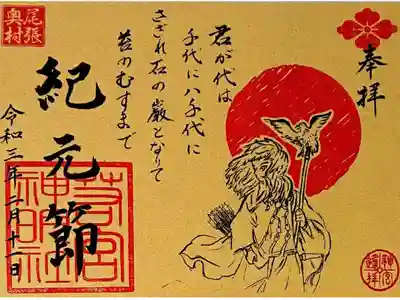 奉拝
君が代は
千代に八千代に
さざれ石の巌となりて
苔のむすまで
紀元節
令和三年二月十一日
尾張
奥村
若宮
神明社